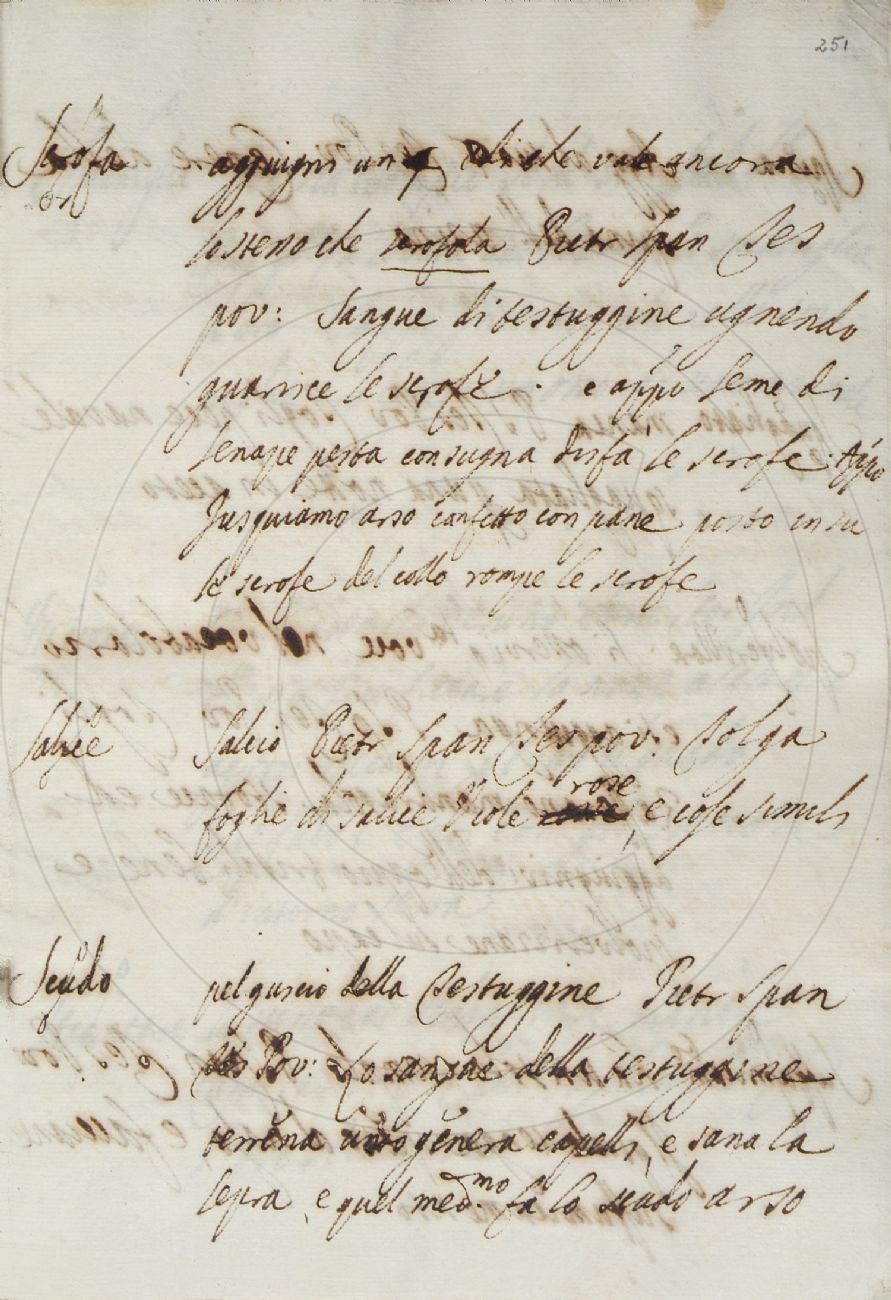 251
Scrofa aggiugni un § di che vale ancora
lo stesso che scrofola Pietr Span Tes
pov: Sangue di testuggine ugnendo
guarisce le scrofe . e app.o Seme di
senape pesta con sugna disfà le scrofe. App.o
Jusquiamo arso confetto con pane posto in su
le scrofe del collo rompe le scrofe
Salcio Pietr Span Tes pov: Tolga
foglie di salce Viole rose, e cose simili
Scudo pel guscio della Testuggine Pietr Span
Tes Pov: Lo sangue della testuggine
terrena unto genera capelli, e sana la
lepra, e quel med.mo fa lo scudo arso